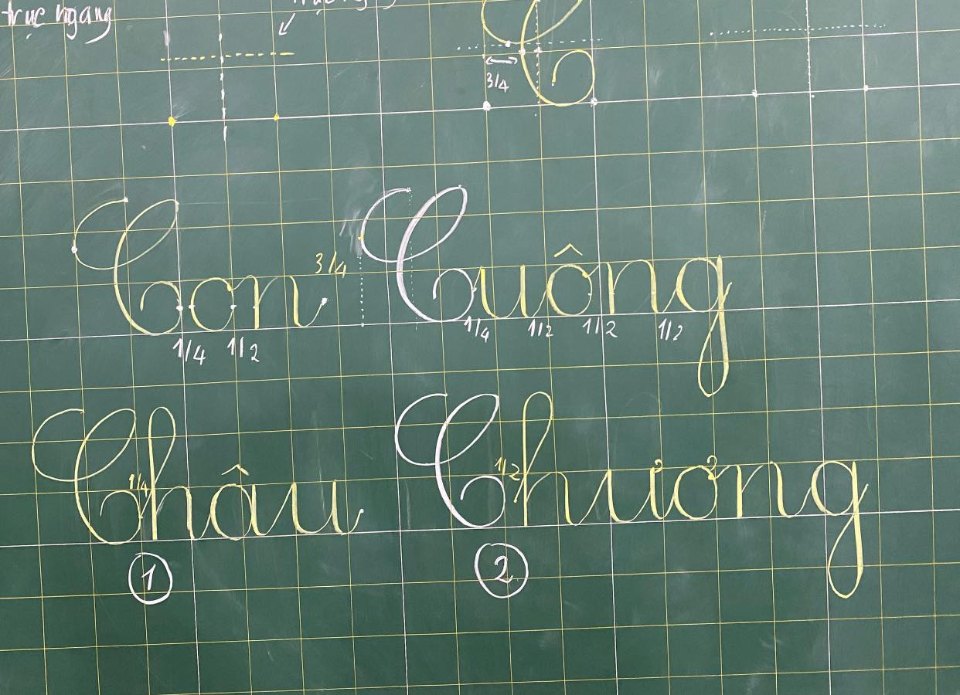 trục ngang
3/4
C
Con 3/4 Cuông
1/4 1/2 1/4 1/2 1/2 1/2
Châu 1/4 Chương 1/2
1 2